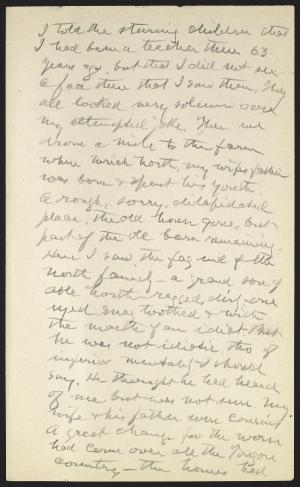 I told the staring children that
I had been a teacher there 63
years ago, but that I did not see
a face there that I saw then. They
all looked very solemn over
my attempted joke. Then we
drove a mile to the farm
where Urich North, my wife's father
was born & spent his youth.
A rough, sorry, dilapidated
place, the old house gone, but
part of the old barn remaining.
Here I saw the fag end of the
North family — a grand son of
Able North — ragged, dirty, one
eyed, snag toothed & with
the mouth of an idiot. But
he was not idiotic, tho of
inferior mentality I should
say. He thought he had heard
of me but was not sure. My
wife & his father were cousins
A great change for the worse
had come over all the
country — the homes had